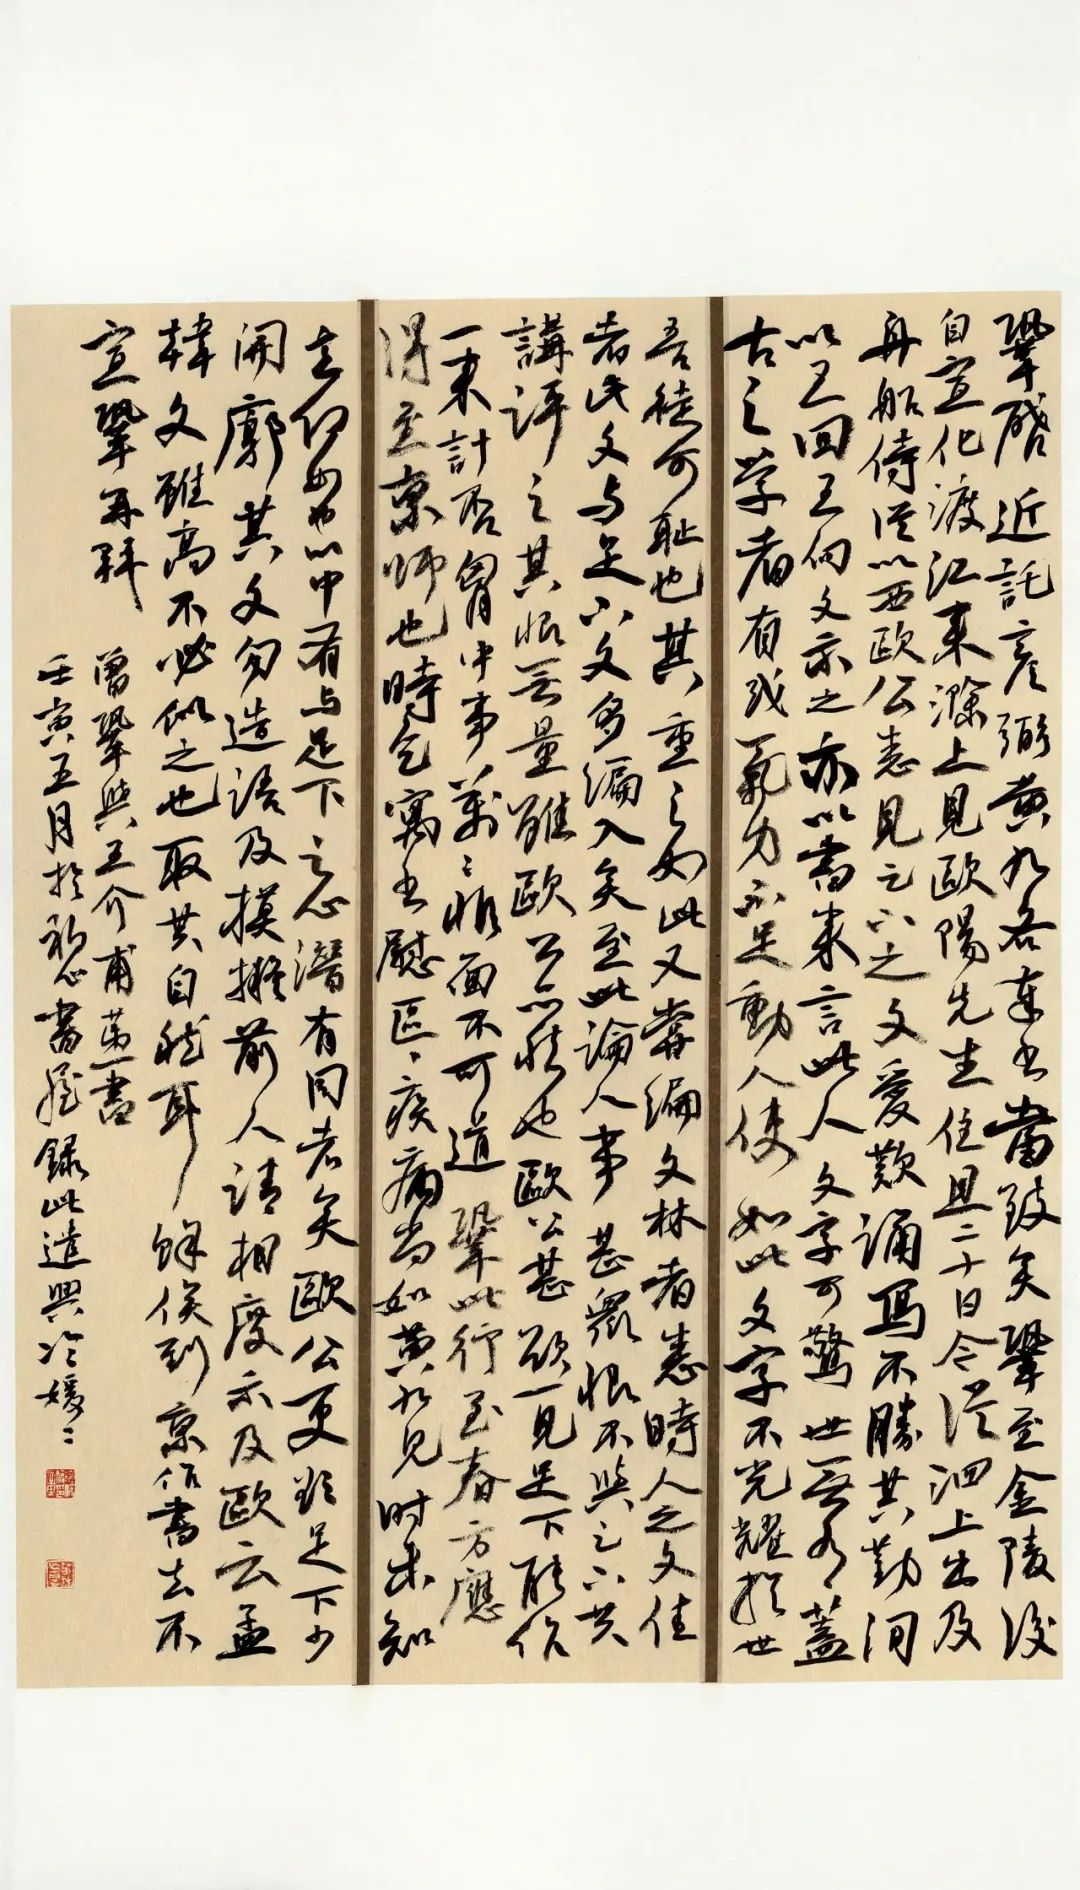 鞏啓近託彥弼黃九各奉書當致矣鞏至金陵後
自宣化渡江來滁上見歐陽先生住且二十日今從泗上出及
舟船侍從以西歐公悉見足下之文愛歎誦寫不勝其勤間
以王回王向文示之亦以書來言此人文字可驚世無有蓋
古之学者有或氣力不足動人使如此文字不光耀於世
吾徒可恥也其重之如此又嘗編文林者悉時人之文佳
者此文与足下文多編入矣至此論人事甚衆恨不與足下共
講評之其恨無量雖歐公亦然也歐公甚欲一見足下能作
一來計否胷中事萬〻非面不可道鞏此行至春方應
得至京師也時乞寓書慰區〻疾病尚如黃九見時未知
竟何如也心中有与足下之心潛有同者矣歐公更欲足下少
開廓其文勿造語及摸擬前人請相度示及歐云孟
韓文雖高不必似之也取其自然耳餘俟到京作書去不
宣鞏再拜
曾鞏與王介甫第一書
壬寅五月於初心書屋錄此遣興冷媛〻